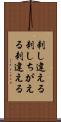 刺し違える
刺しちがえ
る刺違える